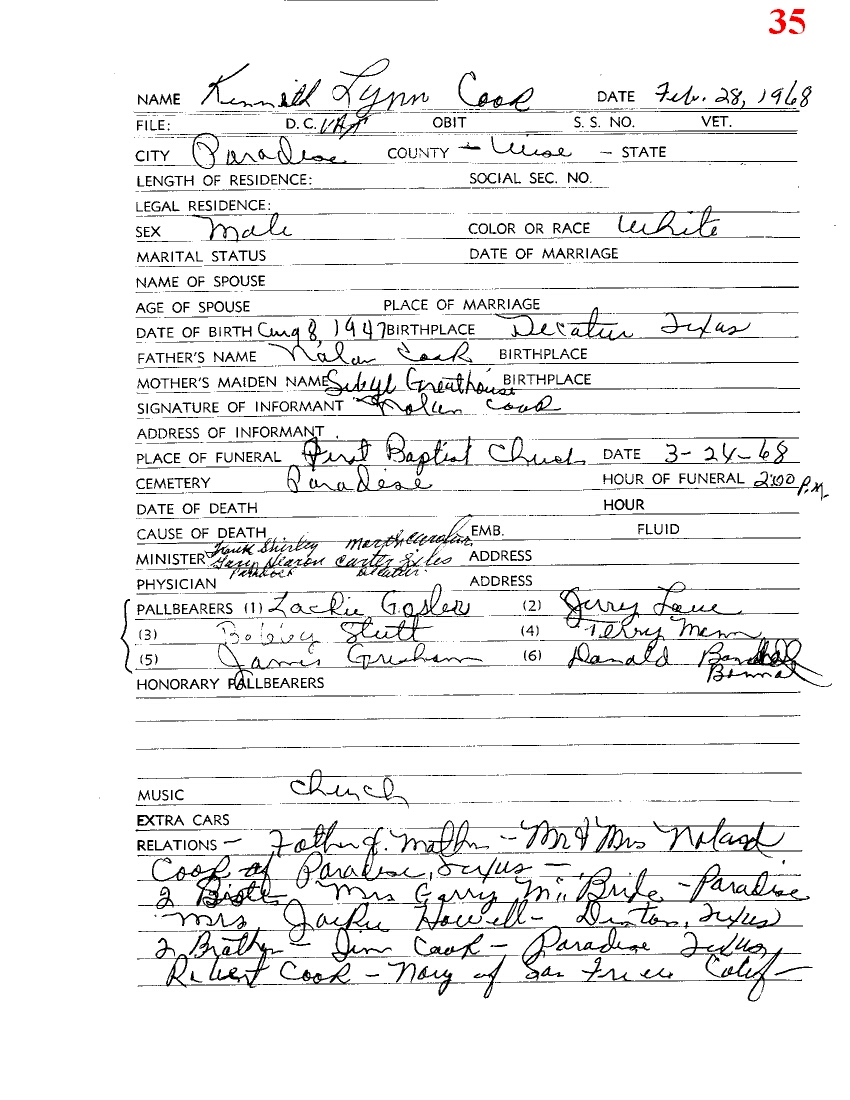 35
NAME Kenneth Lynn Cook DATE Feb. 28, 1968
FILE: D.C. OBIT S. S. NO. VET.
CITY Paradise COUNTY - Wise - STATE
LENGTH OF RESIDENCE: SOCIAL SEC. NO.
LEGAL RESIDENCE:
SEX Male COLOR OR RACE White
MARITAL STATUS DATE OF MARRIAGE
NAME OF SPOUSE
AGE OF SPOUSE PLACE OF MARRIAGE
DATE OF BIRTH Aug 8, 1947 BIRTHPLACE Decatur Texas
FATHER'S NAME Nolan Cook BIRTHPLACE
MOTHER'S MAIDEN NAME Sibyl Greathouse BIRTHPLACE
SIGNATURE OF INFORMANT Nolan Cook
ADDRESS OF INFORMANT
PLACE OF FUNERAL First Baptist Church DATE 3-24-68
CEMETERY Paradise HOUR OF FUNERAL 2:00 P.M.
DATE OF DEATH HOUR
CAUSE OF DEATH EMB. FLUID
Frank Shirley
MINISTER Gary Dearon Carter ADDRESS
Paddock Decatur
PHYSICIAN ADDRESS
PALLBEARERS (1) Lackie Gosler (2) Jerry Lane
(3) Bobby Stutt (4) Terry Mann
(5) James Gresham (6) Donald
HONORARY PALLBEARERS
MUSIC Church
EXTRA CARS
RELATIONS - Father & Mother - Mr & Mrs Noland
Cook of Paradise, Texas -
2 Mrs Garry McBride - Paradise
Mrs Jackie Howell - Denton, Texas
2 Brothers - Jim Cook - Paradise Texas
Robert Cook - Navy of San Calif -